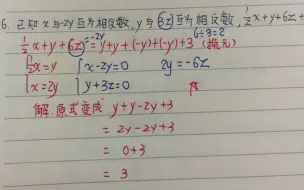 6. 已知 x与-2y互为相反数, y与3z互为相反数, ½x+y+6z+
½x+y+6z=-2y=y+y+(-y)+(-y)+3 6÷3=2
½x=y {x-2y=0 2y=-6z
{x=2y {y+3z=0
解:原式变成 y+y-2y+3
=2y-2y+3
=0+3
=3